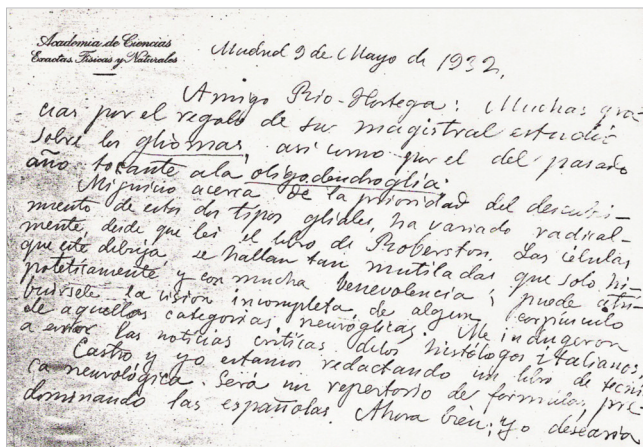 Academia de Ciencias
Exactas, Físicas y Naturales
Madrid 9 de Mayo de 1932,
Amigo Rio-Hortega: Muchas gra-
cias por el regalo de su magistral estudio
sobre los gliomas, asi como por el del pasado
año tocante a la oligodendroglia.
Mi juicio acerca de la prioridad del descubri-
miento de estos dos tipos gliales, ha variado radical-
mente, desde que lei el libro de Roberston. Las células
que este dibuja, se hallan tan mutiladas que solo hi-
poteticamente y con mucha benevolencia, puede atri-
buirsele la vision incompleta, de algun corpúsculo
de aquellas categorias neuróglicas. Me indugeron
a error las noticias criticas de los histólogos italianos,
Castro y yo estamos redactando un libro de tecni-
ca neurológica. Será un repertorio de formulas, pre-
dominando las españolas. Ahora bien; yo desearia